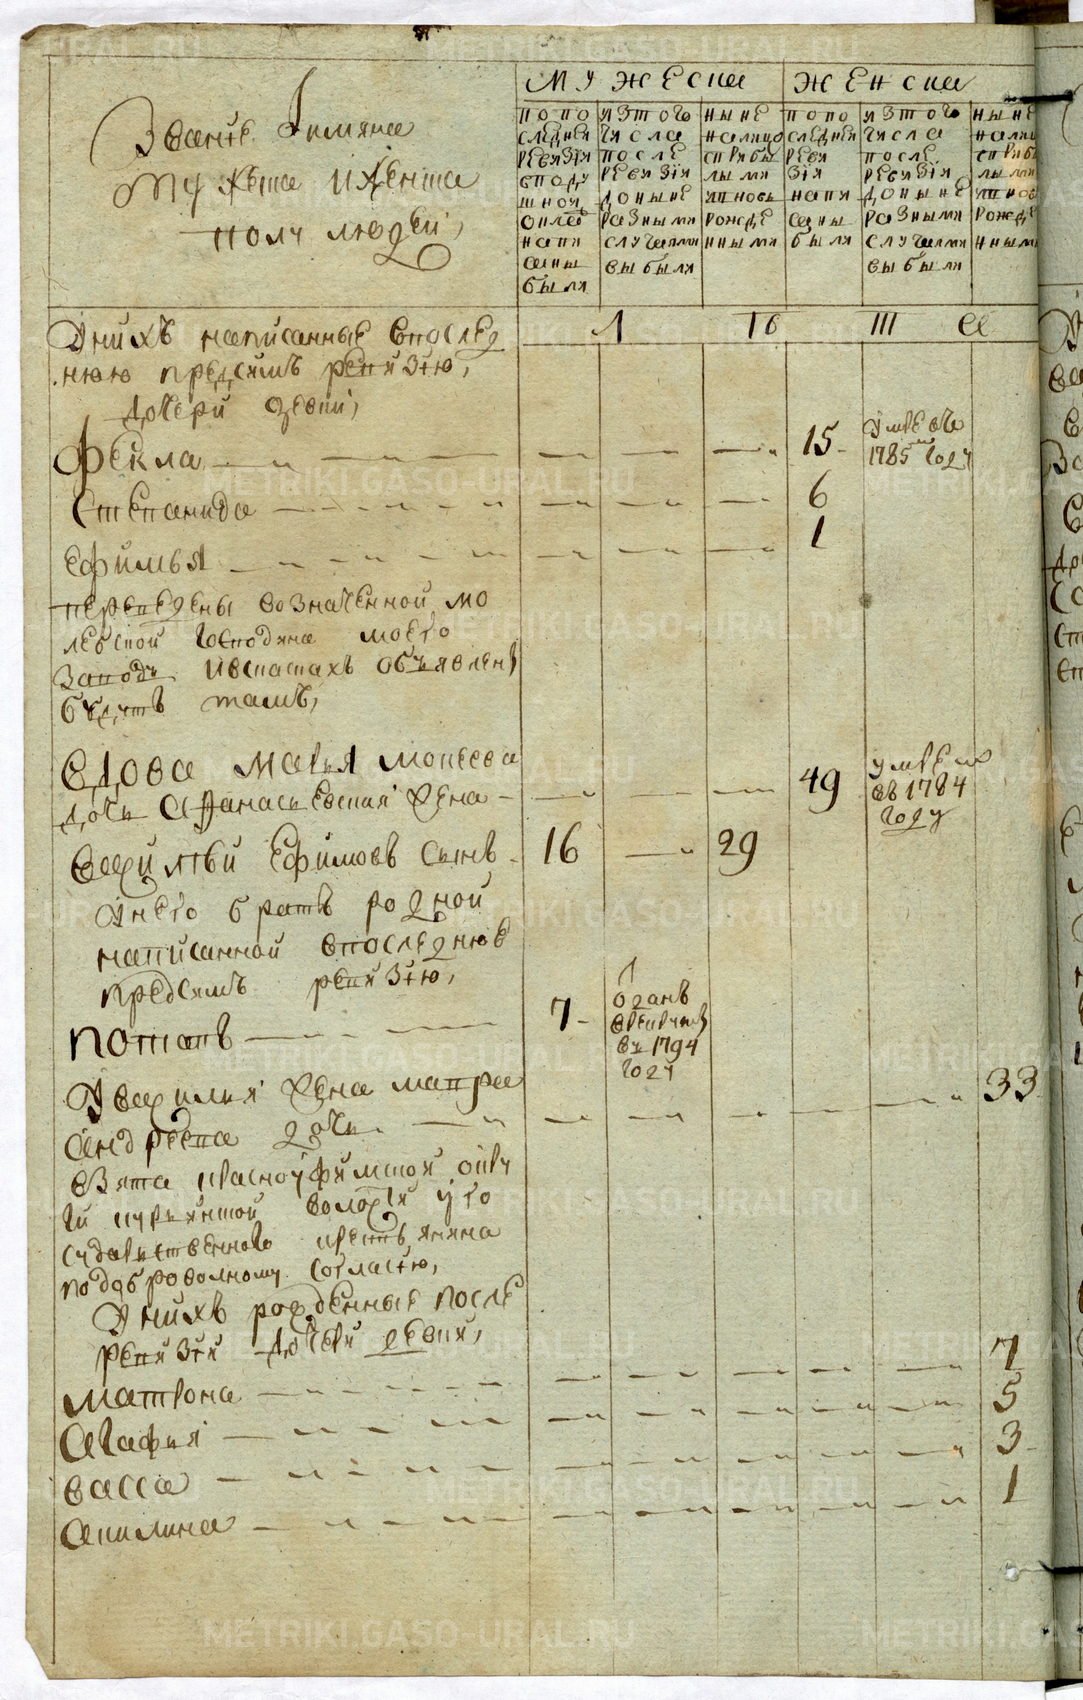 МУЖЕСКА
ЖЕНСКА
Званіе Имяна
мужеска и женска
полу людей,
по по
следней
ревизіи
сподушной
окла
напи
саны
были
изтого
числа
после
ревизіи
доныне
разными
случаями
выбыли
ныне
налицо
сприбы
лыми
ивновь
рожде
нными
попо
следней
реви
зіи
напи
саны
были
изтого
числа
после
ревизіи
доныне
разными
случаями
выбыли
ныне
нали
сприбы
лыми
ивнов
рожде
нными
У нихъ написанные впослед
нюю предсимъ ревизію,
дочери девки,
Фекла 15 умре въ
1785м году
Степанида 6
Ефимья 1
переведены возначенной мо
лебской господина моего
заводъ ивскаскахъ объявлены
будутъ тамъ,
Вдова Марья Мокеева
дочь Афанасьевская жена 49 умре
въ 1784
году
Василей Ефимовъ сынъ 16 29
У него братъ родной
написанной впоследнюю
предсимъ ревизію,
Потапъ 7 1
отданъ
врекруты
въ 1794
году
У Василья жена Мавра
Андреева дочь 33
взята красноуфимской окру
ги
волости у го
сударственного крестьянина
подобровольному согласію,
У нихъ рожденные после
ревизіи дочери девки,
Матрона 7
Агафья 5
Васса 3
Акилина 1
METRIKI.GASO-URAL.RU